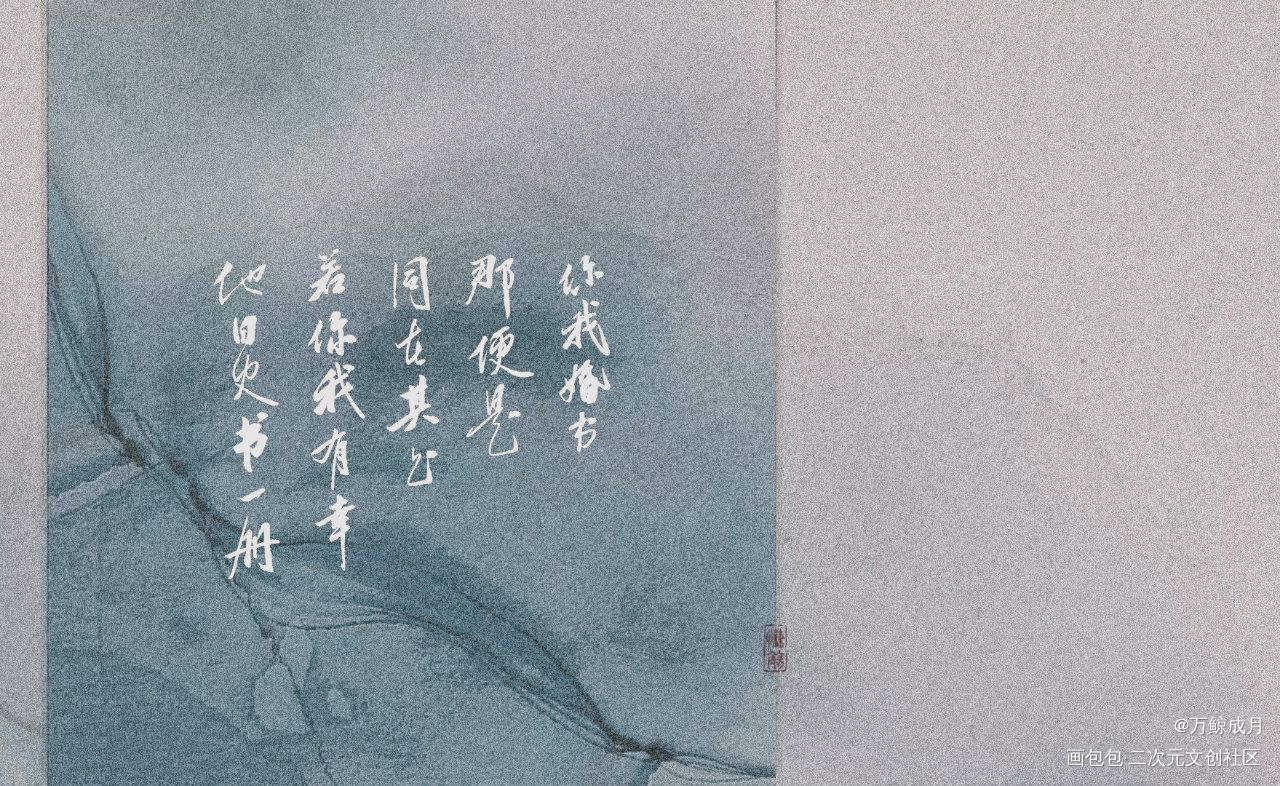 他日史书一册
若你我有幸
同在其上
那便是
你我婚书
@万鲸成月
画包包·二次元文创社区